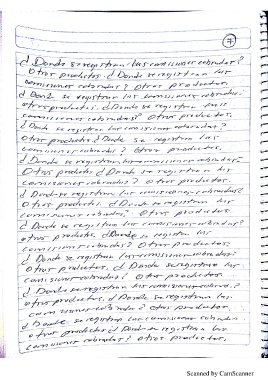 7
¿Donde se registran las comisiones cobradas?
Otros productos. ¿Donde se registran las
comisiones cobradas? Otros productos.
¿Donde se registran las comisiones cobradas?
otros productos. ¿Donde se registran las
comisiones cobradas? Otros productos.
¿Donde se registran las comisiones cobradas?
Otros productos. ¿Donde se registran las
comisiones cobradas? Otros productos.
¿Donde se registran las comisiones cobradas?
Otros productos. ¿Donde se registran las
comisiones cobradas? Otros productos.
¿Donde se registran las comisiones cobradas?
Otros productos. ¿Donde se registran las
comisiones cobradas? Otros productos.
¿Donde se registran las comisiones cobradas?
otros productos. ¿Donde se registran las
comisiones cobradas? Otros productos.
¿Donde se registran las comisiones cobradas?
Otros productos. ¿Donde se registran las
comisiones cobradas? Otros productos
¿Donde se registran las comisiones cobradas?
otros productos. ¿Donde se registran las
comisiones cobradas? otros productos.
¿Donde se registran las comisiones cobradas
otros productos ¿Donde se registran las
comisiones cobradas? Otros productos.
Scanned by CamScanner